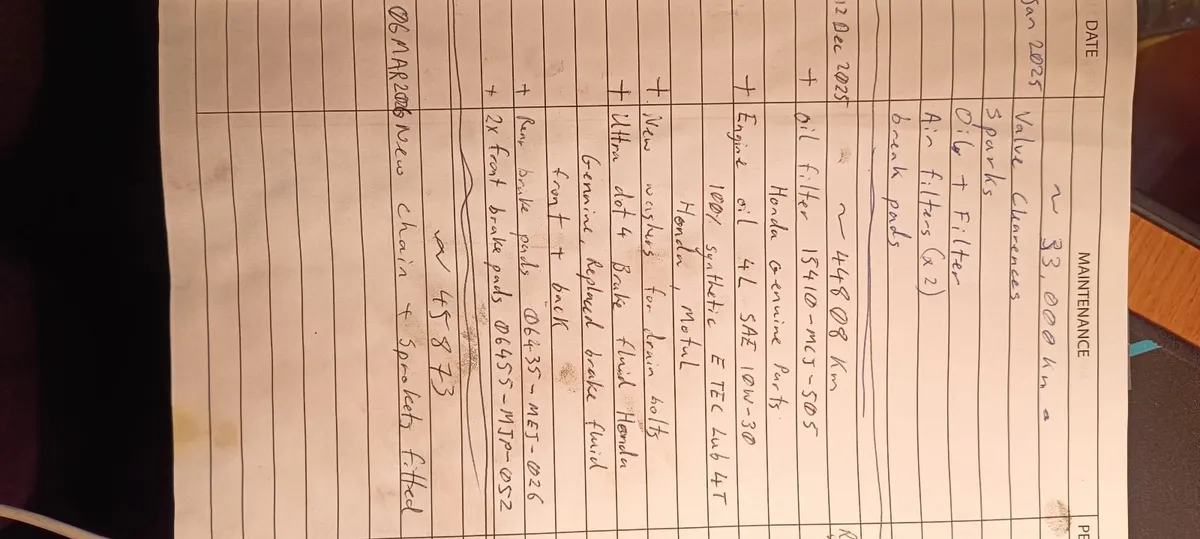 DATE MAINTENANCE PE
~ 33,000 km
Jan 2025 Valve Clearences
Sparks
Oil + Filter
Air filters (x2)
break pads
12 Dec 2025 ~ 44808 Km
+ oil filter 15410-MCJ-505
Honda Genuine Parts
+ Engine oil 4L SAE 10W-30
100% synthetic E TEC Lub 4T
Honda, Motul
+ New washers for drain bolts
+ Ultra dot 4 Brake fluid Honda
Genuine, Replaced brake fluid
front + back
+ Rear brake pads 06435-MEJ-026
+ 2x front brake pads 06455-MJP-052
~ 45873
06MAR2026 New chain + sprokets fitted